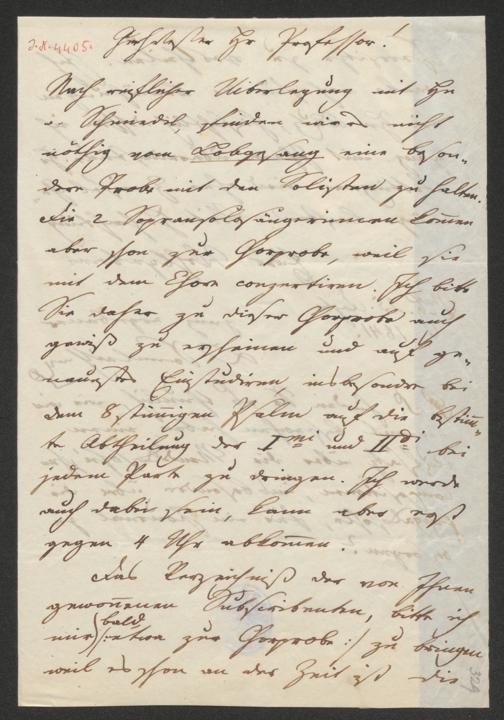 J.N. 4405.
Hochgeehrtester Hr Professor!
Nach reiflicher Uiberlegung mit H
v. Schmiedel, finden wir es nicht
nöthig vom Lobgesang eine beson-
dere Probe mit den Solisten zu halten.
Die 2 Sopransolosängerinnen kommen
aber schon zur Chorprobe, weil sie
mit dem Chore conzertiren. Ich bitte
Sie daher zu dieser Chorprobe auch
gewiß zu erscheinen und auf ge-
nauestes Einstudiren, insbesondere bei
dem 8stimigen Psalm auf die bestim-
te Abtheilung der Imi und IIdi bei
jedem Parte zu dringen. Ich werde
auch dabei sein, kann aber erst
gegen 4 Uhr abkommen.
Das Verzeichniß der von Ihnen
gewonnenen Subscribenten, bitte ich
mir bald /: etwa zur Chorprobe :/ zu bringen
weil es schon an der Zeit ist die
329